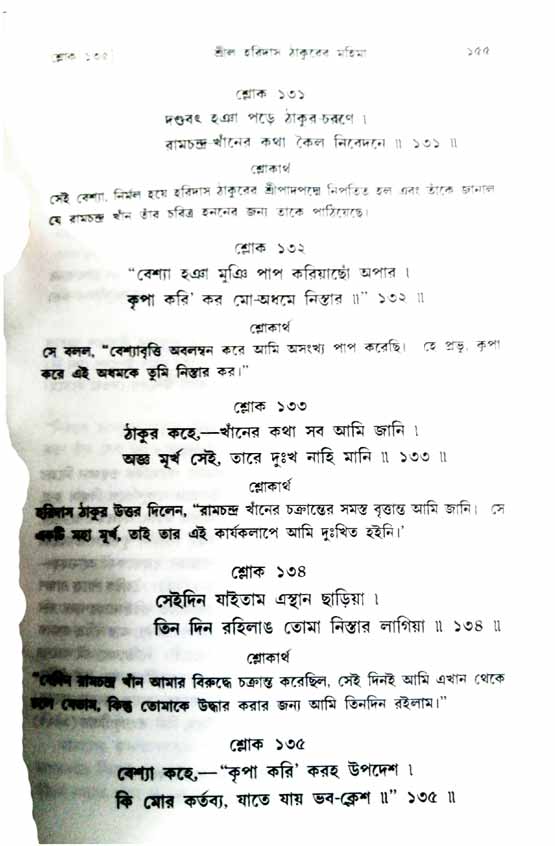 শ্লোক ১৩৫] শ্রীল হরিদাস ঠাকুরের মহিমা ১৫৫
শ্লোক ১৩১
দণ্ডবৎ হঞা পড়ে ঠাকুর-চরণে ।
রামচন্দ্র-খাঁনের কথা কৈল নিবেদনে ॥ ১৩১ ॥
শ্লোকার্থ
সেই বেশ্যা, নির্মল হয়ে হরিদাস ঠাকুরের শ্রীপাদপদ্মে নিপতিত হল এবং তাঁকে জানাল
যে রামচন্দ্র খাঁন তাঁর চরিত্র হননের জন্য তাকে পাঠিয়েছে।
শ্লোক ১৩২
“বেশ্যা হঞা মুঞি পাপ করিয়াছোঁ অপার ।
কৃপা করি’ কর মো-অধমে নিস্তার ॥” ১৩২ ॥
শ্লোকার্থ
সে বলল, “বেশ্যাবৃত্তি অবলম্বন করে আমি অসংখ্য পাপ করেছি। হে প্রভু, কৃপা
করে এই অধমকে তুমি নিস্তার কর।”
শ্লোক ১৩৩
ঠাকুর কহে,—খাঁনের কথা সব আমি জানি ।
অজ্ঞ মূর্খ সেই, তারে দুঃখ নাহি মানি ॥ ১৩৩ ॥
শ্লোকার্থ
হরিদাস ঠাকুর উত্তর দিলেন, “রামচন্দ্র খাঁনের চক্রান্তের সমস্ত বৃত্তান্ত আমি জানি। সে
একটি মহা মূর্খ, তাই তার এই কার্যকলাপে আমি দুঃখিত হইনি।’
শ্লোক ১৩৪
সেইদিন যাইতাম এস্থান ছাড়িয়া ।
তিন দিন রহিলাঙ তোমা নিস্তার লাগিয়া ॥ ১৩৪ ॥
শ্লোকার্থ
“যেদিন রামচন্দ্র খাঁন আমার বিরুদ্ধে চক্রান্ত করেছিল, সেই দিনই আমি এখান থেকে
চলে যেতাম, কিন্তু তোমাকে উদ্ধার করার জন্য আমি তিনদিন রইলাম।”
শ্লোক ১৩৫
বেশ্যা কহে,—“কৃপা করি’ করহ উপদেশ ।
কি মোর কর্তব্য, যাতে যায় ভব-ক্লেশ ॥” ১৩৫ ॥